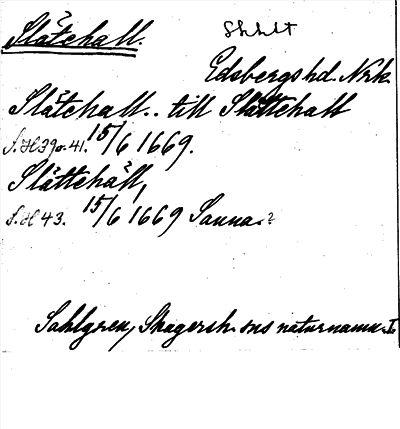 Slåtehall.
Skhlt
Edsbergs hd. Nrk.
Slåtehall.. till Slåttehall
S.H 39 o. 41. 15/6 1669.
Slåttehåll,
S.H 43. 15/6 1669 Sanna.?
Sahlgren, Skagersh. sns naturnamn. I.